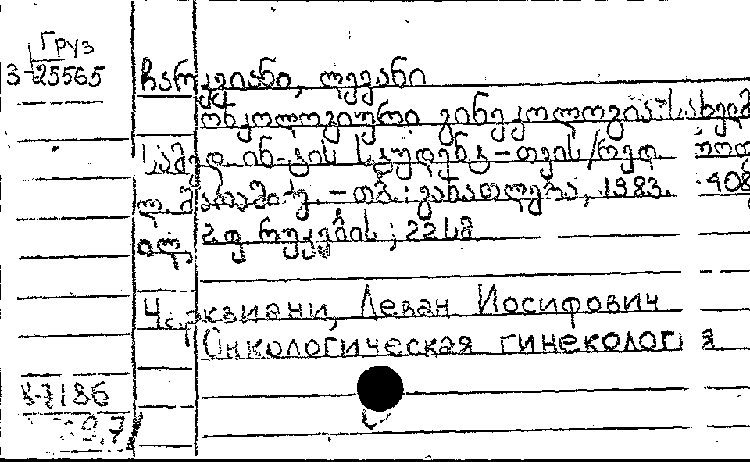 Груз
3-25565
ჩარკვიანი, ლევანი
ონკოლოგიური გინეკოლოგია: სახელმ
სამედ. ინ-ტის სტუდენტ-თვის /რედ.
ლ. - თბ.: განათლება, 1983. -408
ილ, 2 ფ რუკების ; 22 სმ
Чарквиани, Леван Иосифович
Онкологическая гинекология